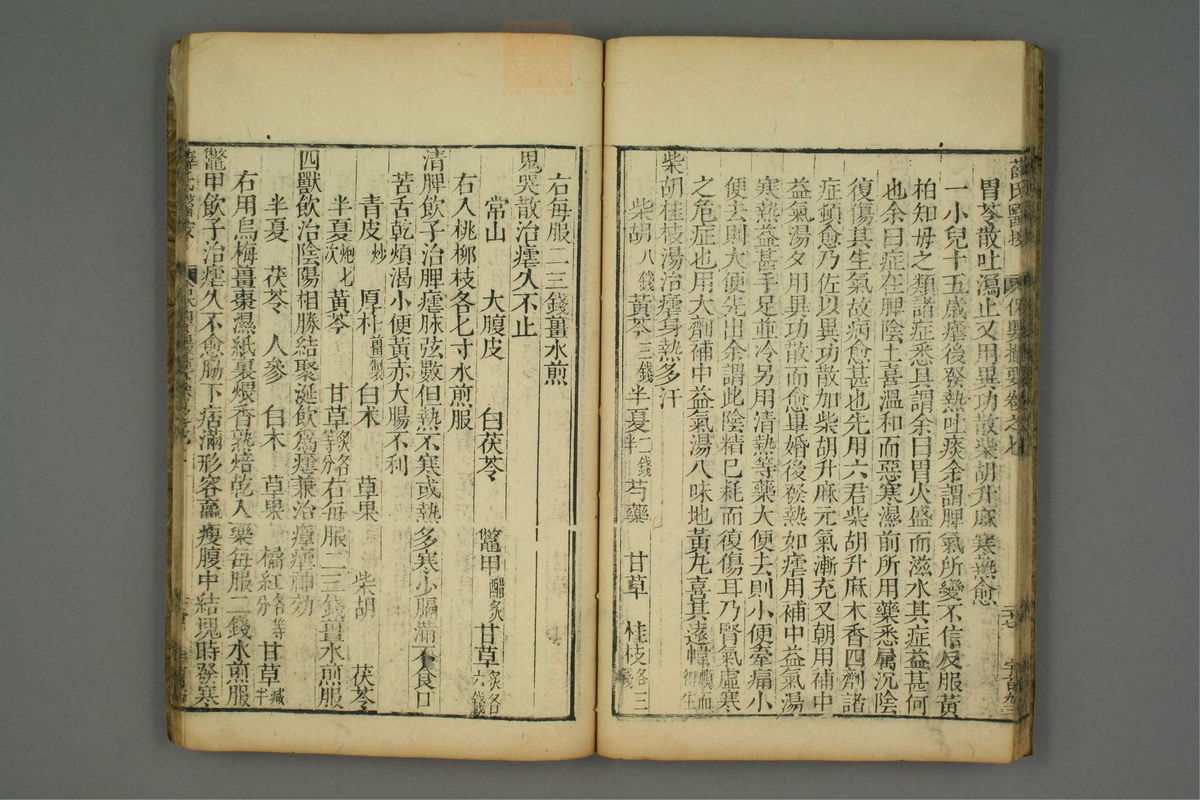 薛氏醫按 保嬰撮要卷之七
胃苓散吐瀉止又用異功散柴胡升麻寒熱愈
一小兒十五歲瘧後發熱吐痰余謂脾氣所變不信反服黃
柏知母之類諸症悉具謂余曰胃火盛而滋水其症益甚何
也余曰症在脾陰土喜溫和而惡寒濕前所用藥悉屬沉陰
復傷其生氣故病愈甚也先用六君柴胡升麻木香四劑諸
症頓愈乃佐以異功散加柴胡升麻元氣漸充又朝用補中
益氣湯夕用異功散而愈畢婚後發熱如瘧用補中益氣湯
寒熱益甚手足並冷另用清熱等藥大便去則小便牽痛小
便去則大便先出余謂此陰精已耗而復傷耳乃腎氣虛寒
之危症也用大劑補中益氣湯八味地黃丸喜其遠幃順而
柴胡桂枝湯治瘧身熱多汗
柴胡八錢 黃芩三錢 半夏二錢半 芍藥 甘草 桂枝各三錢
右每服二三錢薑水煎
鬼哭散治瘧久不止
常山 大腹皮 白茯苓 鱉甲醋炙 甘草炙各六錢
右入桃柳枝各七寸水煎服
清脾飲子治脾瘧脉弦數但熱不寒或熱多寒少膈滿不食口
苦舌乾煩渴小便黃赤大腸不利
青皮炒 厚朴薑製 白朮 草果 柴胡 茯苓
半夏炮七次 黃芩 甘草炙各等分 右每服二三錢薑水煎服
四獸飲治陰陽相勝結聚涎飲爲瘧兼治瘴瘧神効
半夏 茯苓 人參 白朮 草果 橘紅各等分 甘草減半
右用烏梅薑棗濕紙裹煨香熟焙乾入藥每服二錢水煎服
鱉甲飲子治瘧久不愈脇下痞滿形容羸瘦腹中結塊時發寒